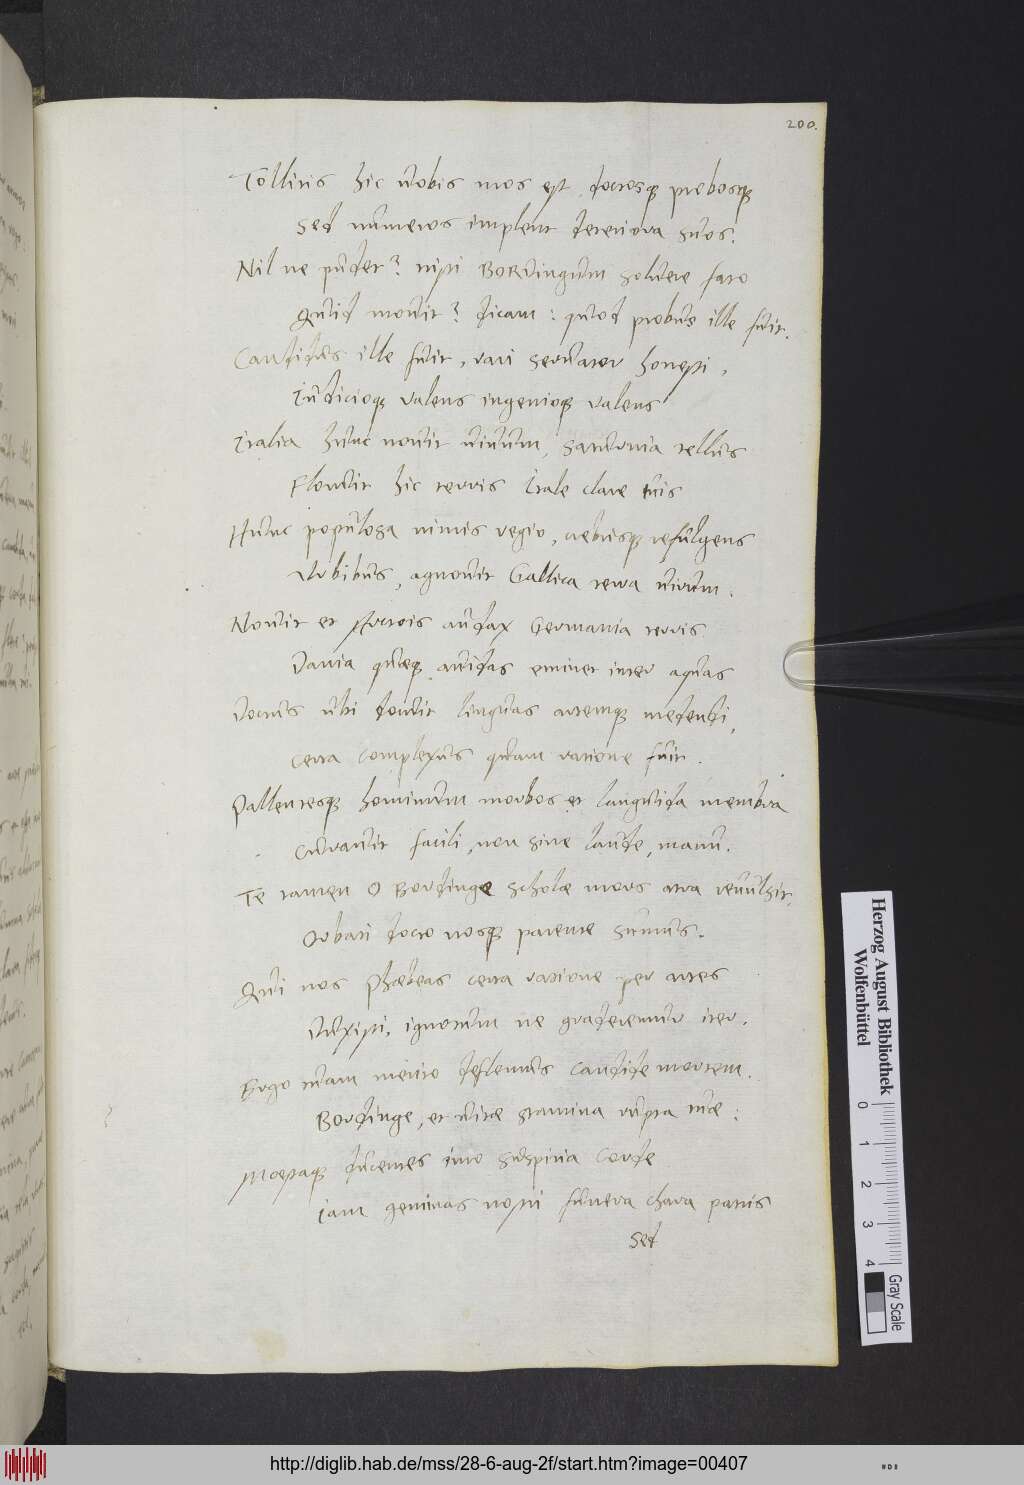 200.
Tollitis hic vobis mos est, doctosq3 probosq3
Sed numeros implent deteriora suos.
Nil ne pudet? nisi Bordingum soluere fato
Quid mouit? dicam: quod probus ille fuit.
Candidus ille fuit, rari seruator honesti,
Iudicioq3 valens ingenioq3 valens
Italia hunc nouit uiuum, Santonia tellus
Flouuit hic terris Itale clare tuis
Hunc populosa nimis regio, crebrisq3 refulgens
Urbibus, agnouit Gallica terra uirum.
Nouit et Arctois audax Germania terris
Dania quæq3 auidas eminet inter aquas
Doctus ubi docuit linguas artemq3 medendi,
certa complexus quam ratione fuit.
Pallentesq3 hominum morbos et languida membra
curauit facili, non sine laude, manu.
Te tamen O Bordinge scholæ mors atra reuulsit.
Orbati docto nosq3 parente sumus.
Qui nos Phœbeas certa ratione per artes
Duxisti, ignotum ne graderemur iter.
Ergo tuam merito deflemus candide mortem.
Bordinge, et uitæ stamina rupta tuæ:
Mœstaq3 ducentes imo suspiria corde
iam geminas nostri funera chara patris
Sed
Herzog August Bibliothek
Wolfenbüttel
0 1 2 3 4
Gray Scale
http://diglib.hab.de/mss/28-6-aug-2f/start.htm?image=00407